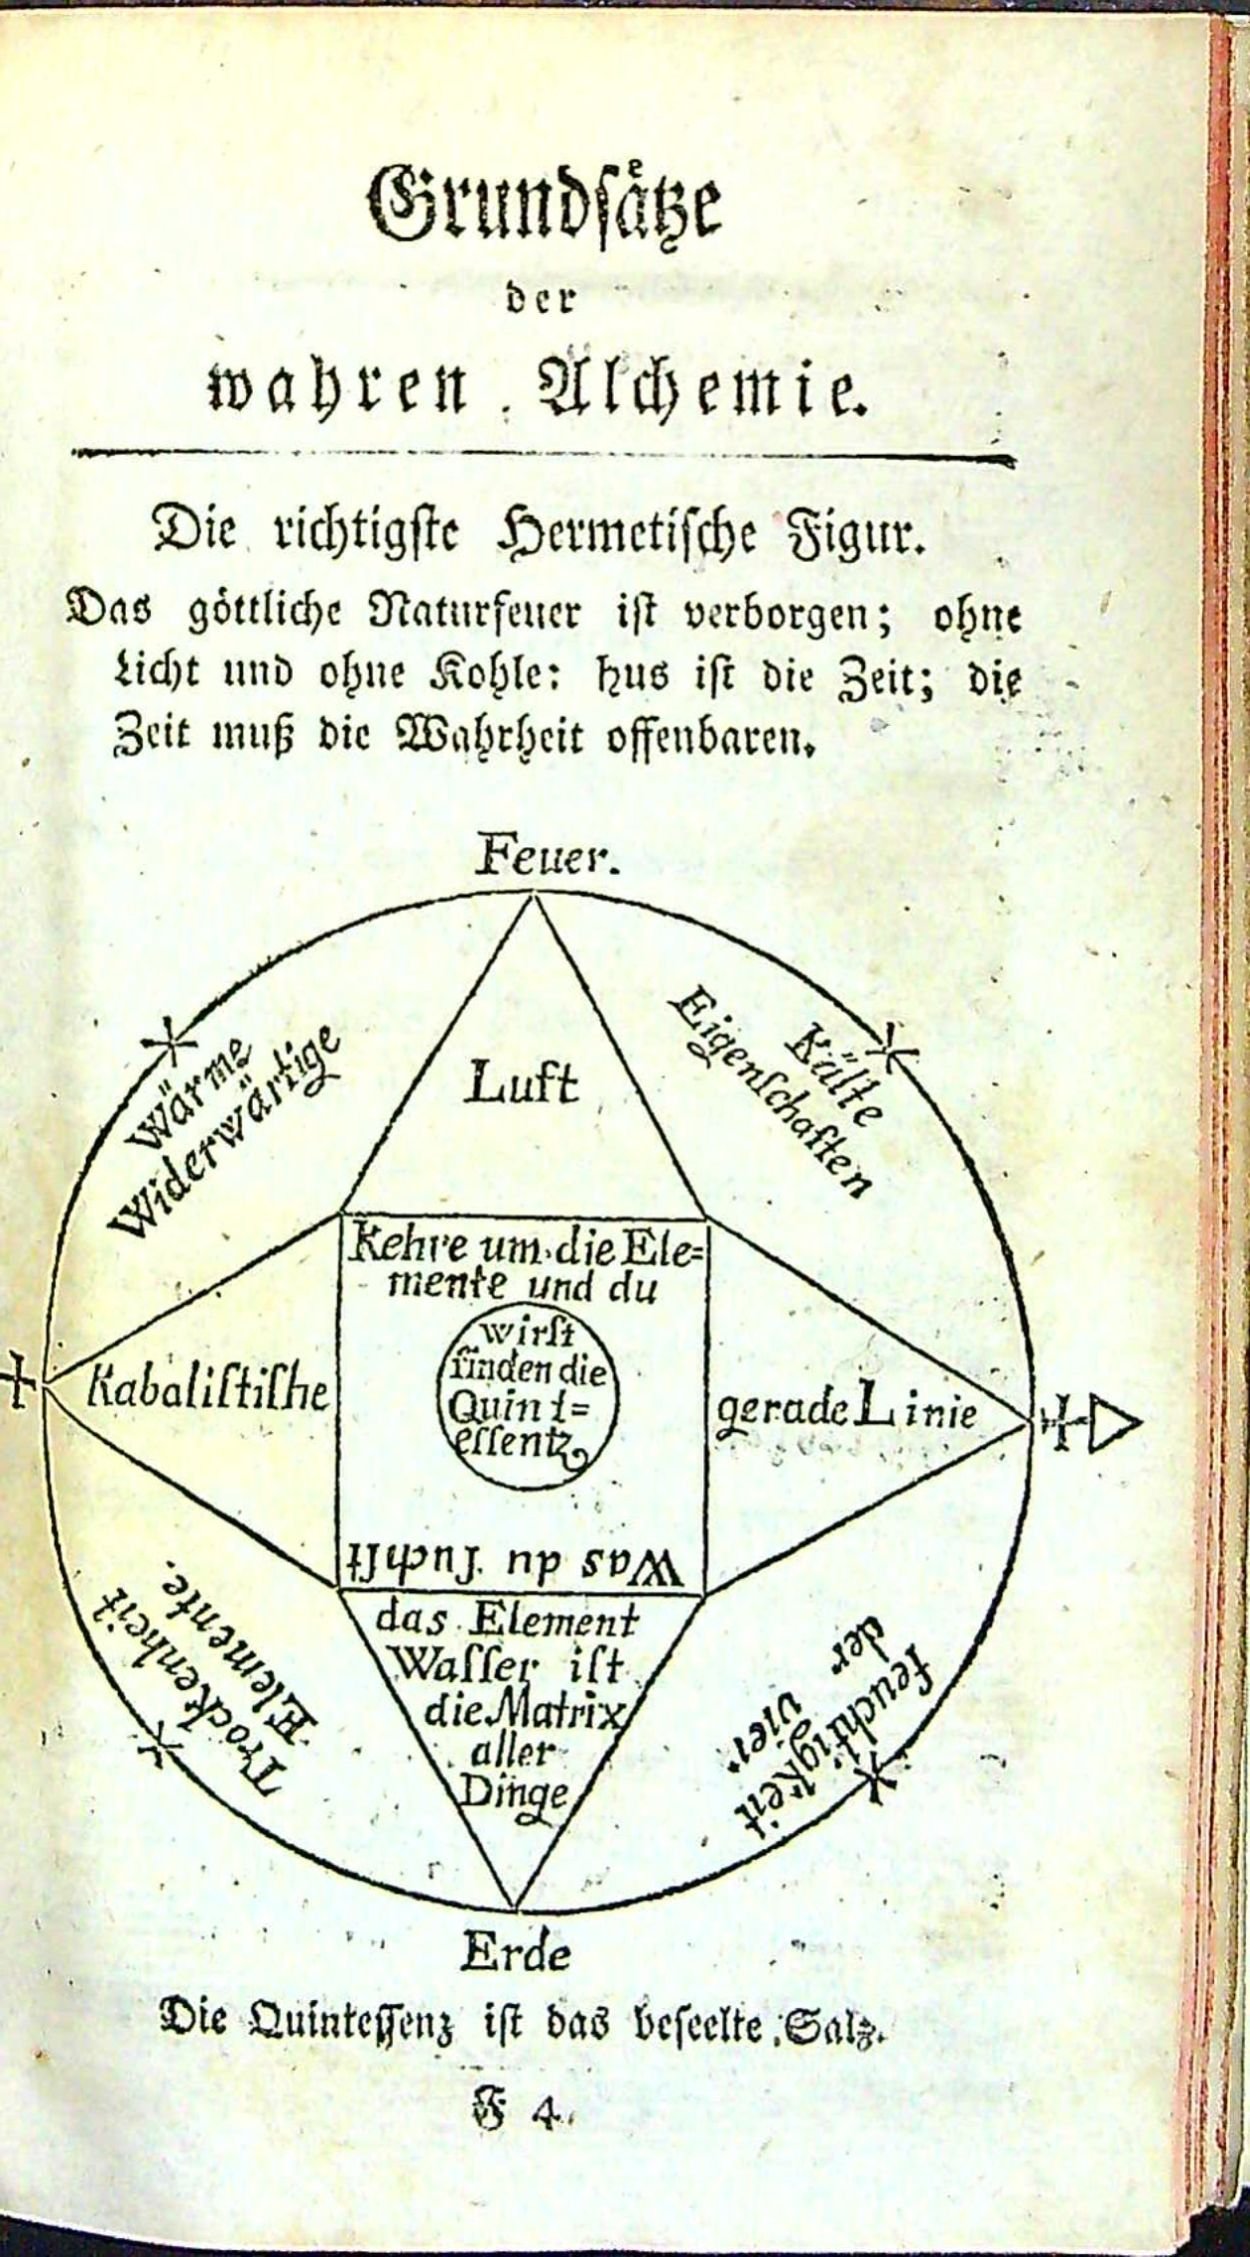 Grundsaͤtze
der
wahren Alchemie.
Die richtigste Hermetische Figur.
Das göttliche Naturfeuer ist verborgen; ohne
Licht und ohne Kohle: hus ist die Zeit; die
Zeit muß die Wahrheit offenbaren.
Feuer.
Wärme
Widerwärtige
Kälte
Eigenschaften
Luft
Kehre um die Ele=
mente und du
wirst
finden die
Quint=
essentz
Kabalistishe
gerade Linie
Was du suchst
das Element
Wasser ist
die Matrix
aller
Dinge
Trockenheit
Elemente.
feuchtigkeit
der vier
Erde
Die Quintessenz ist das beseelte Salz.
F 4